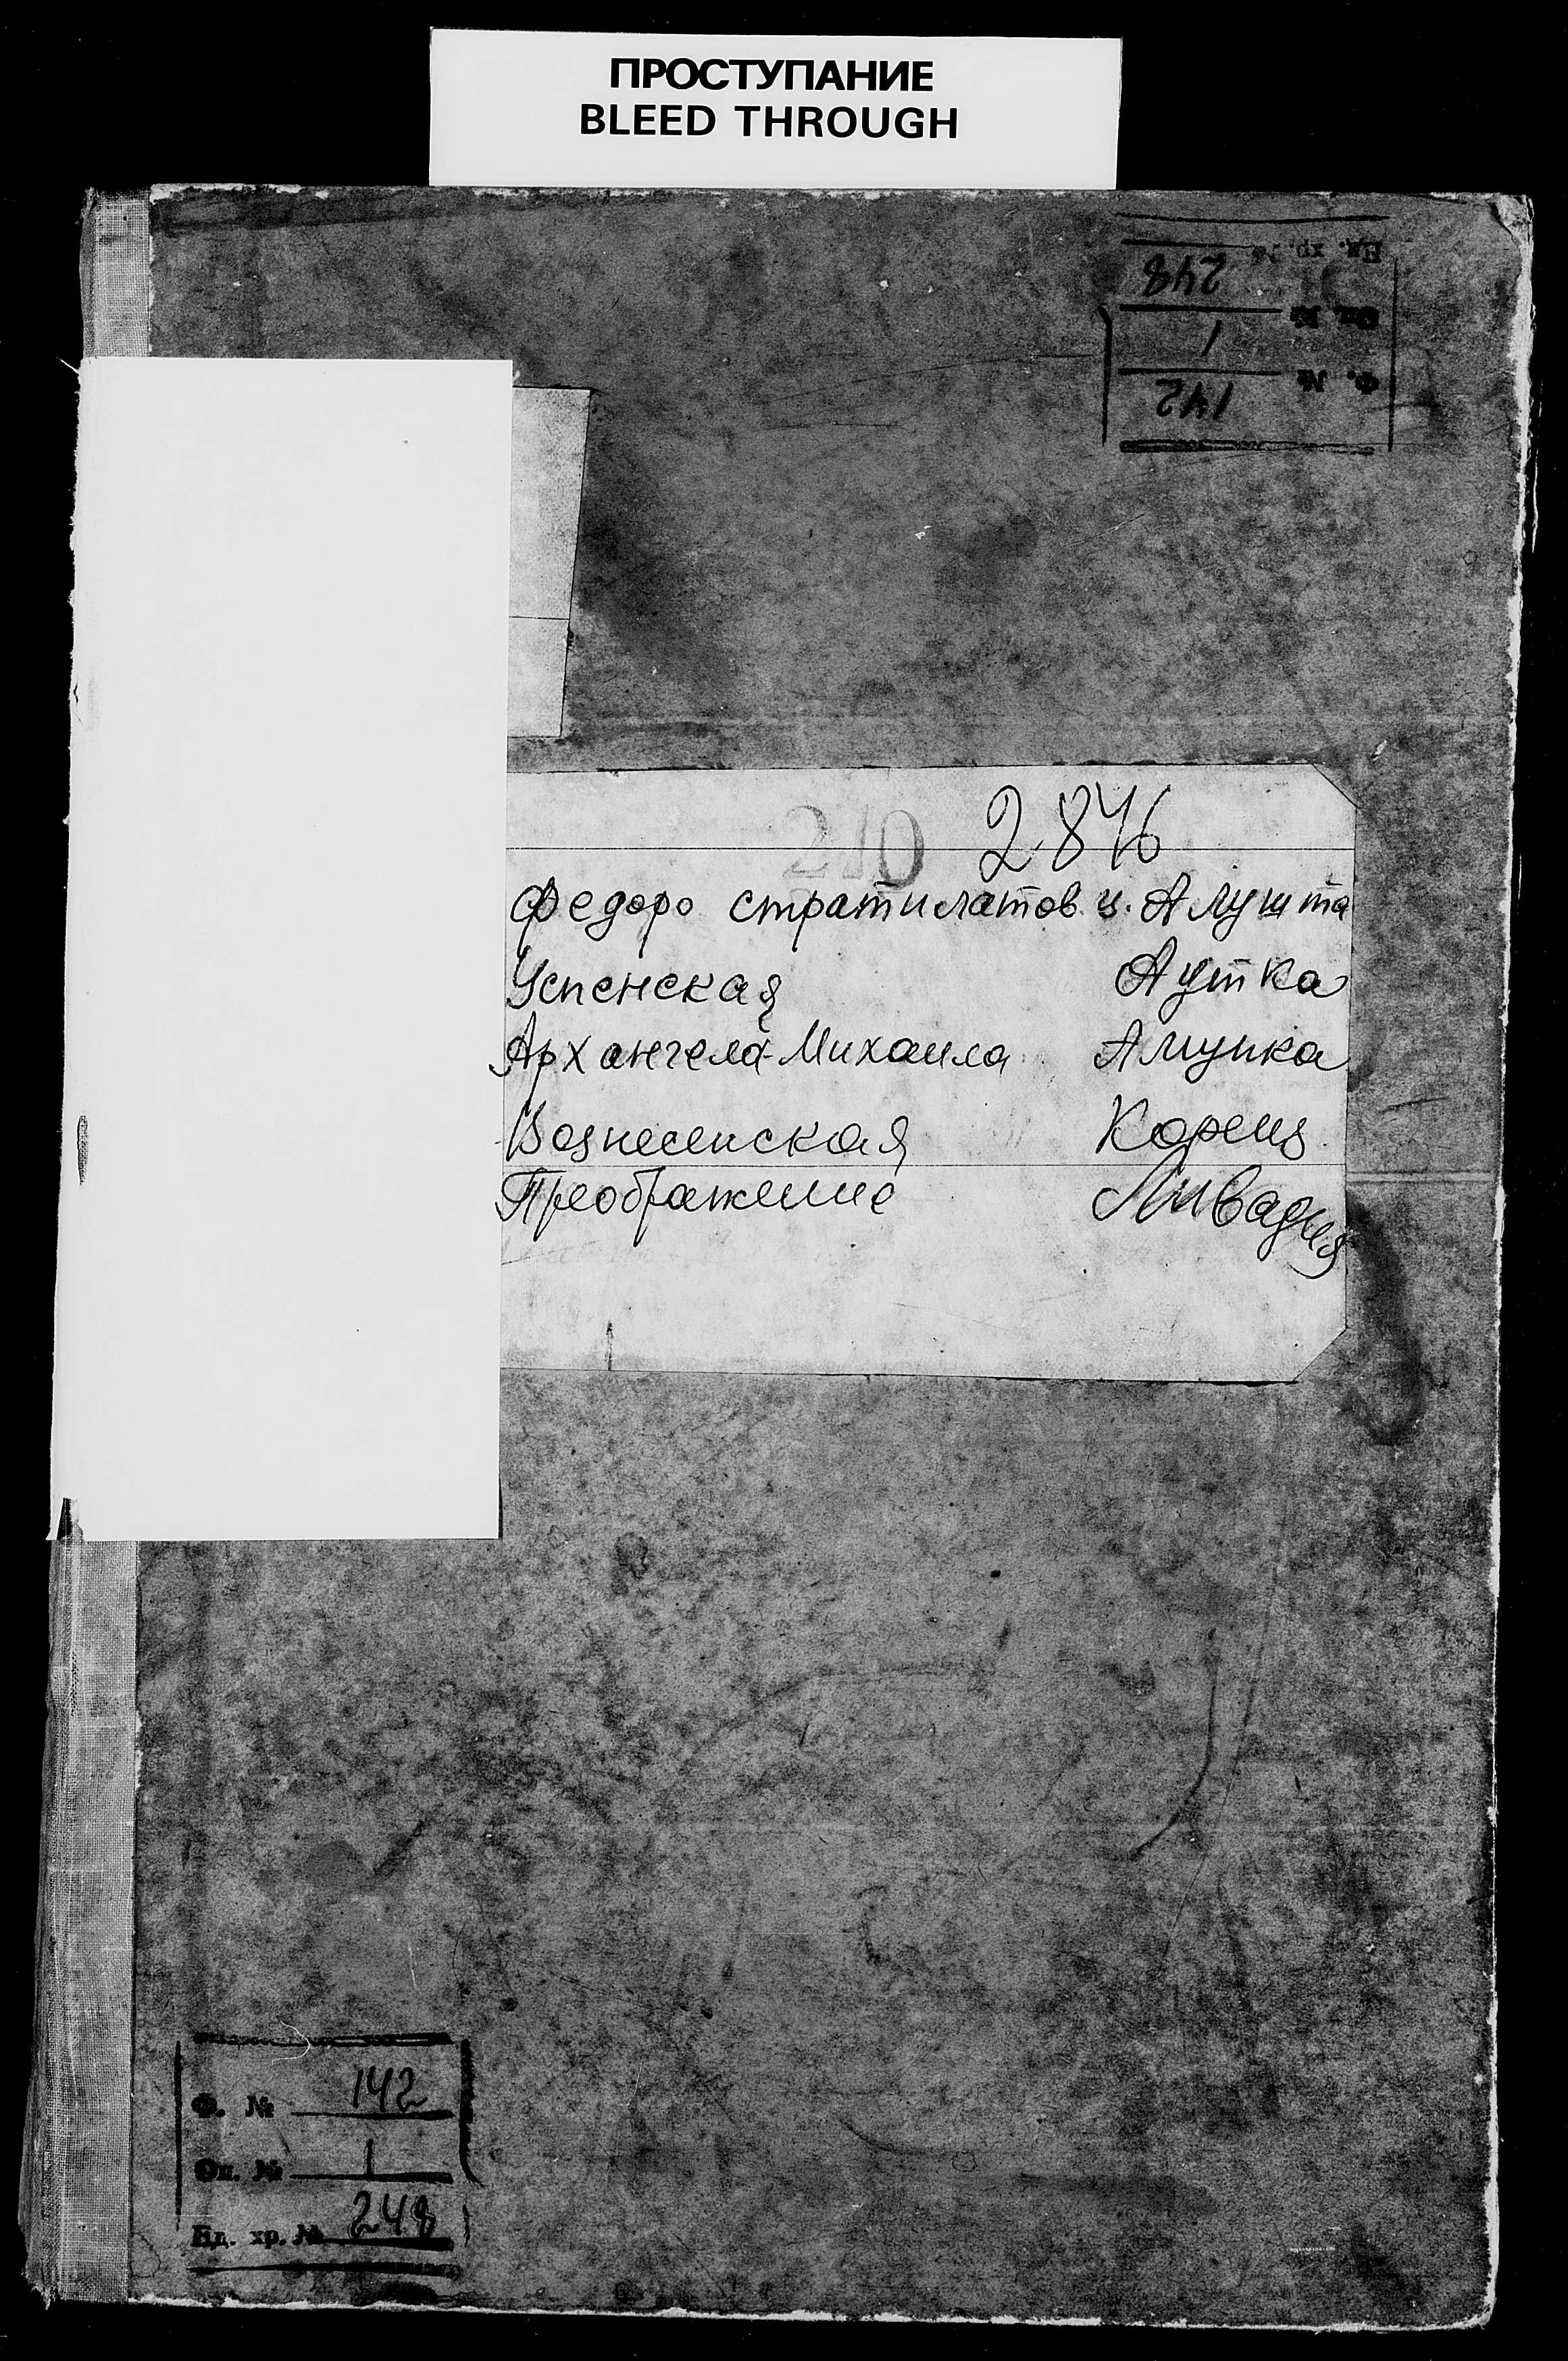 ПРОСТУПАНИЕ
BLEED THROUGH
Ед. хр. №
248
Оп. № 1
Ф. № 142
210 2846
Федоро стратилатов. ц. Алушта
Успенская Аутка
Архангела-Михаила Алупка
Вознесенская Кореиз
Преображение Ливадия
Ф. № 142
Оп. № 1
Ед. хр. № 248